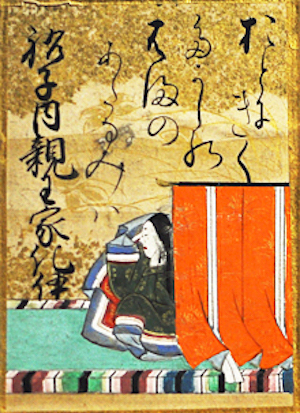 おとにきく
たかしの
はまの
あたなみハ
祐子内親王家紀伊